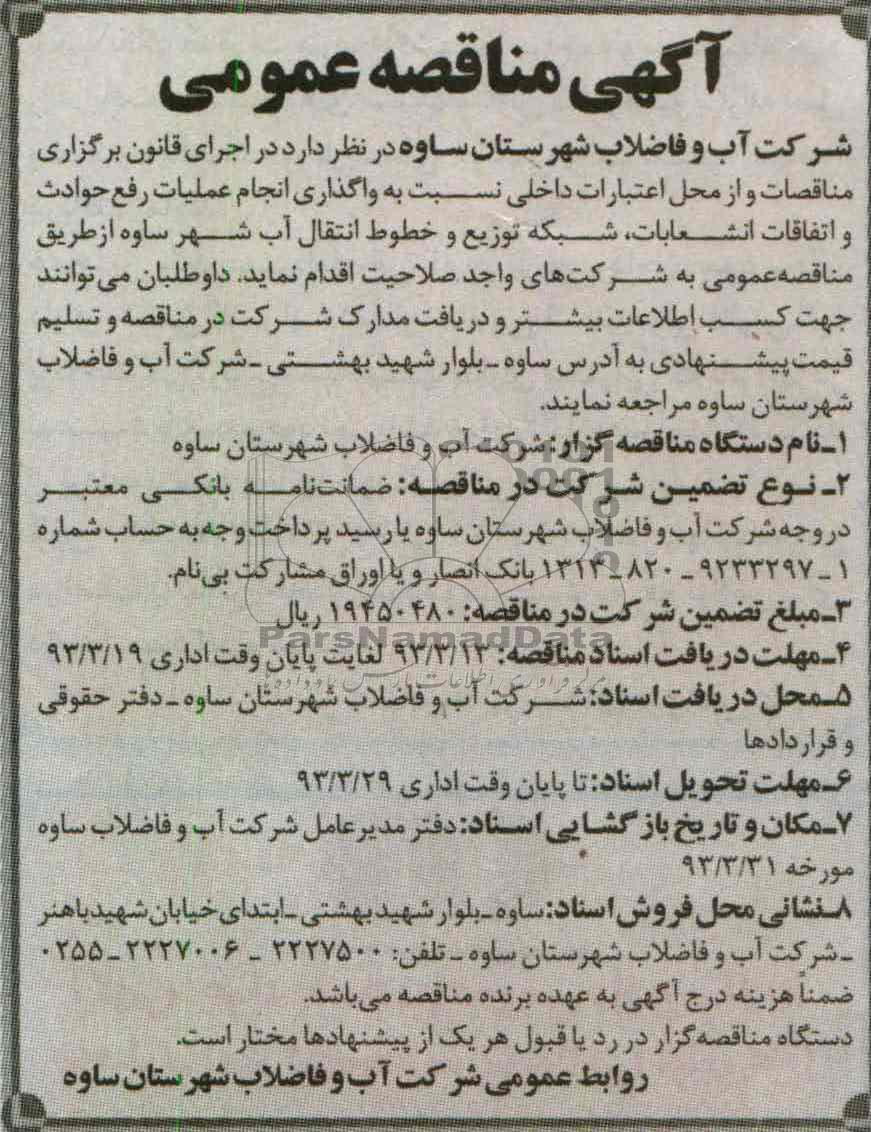 آگهی مناقصه عمومی
شرکت آب و فاضلاب شهرستان ساوه در نظر دارد در اجرای قانون برگزاری
مناقصات و از محل اعتبارات داخلی نسبت به واگذاری انجام عملیات رفع حوادث
و اتفاقات انشعابات، شبکه توزیع و خطوط انتقال آب شهر ساوه ازطریق
مناقصه‌عمومی به شرکت‌های واجد صلاحیت اقدام نماید. داوطلبان می‌توانند
جهت کسب اطلاعات بیشتر و دریافت مدارک شرکت در مناقصه و تسلیم
قیمت پیشنهادی به آدرس ساوه ـ بلوار شهید بهشتی ـ شرکت آب و فاضلاب
شهرستان ساوه مراجعه نمایند.
۱ـ نام دستگاه مناقصه گزار: شرکت آب و فاضلاب شهرستان ساوه
۲ـ نوع تضمین شرکت در مناقصه: ضمانت‌نامه بانکی معتبر
در وجه شرکت آب و فاضلاب شهرستان ساوه یا رسید پرداخت وجه به حساب شماره
۱ ـ ۹۲۳۳۲۹۷ ـ ۸۲۰ ـ ۱۳۱۳ بانک انصار و یا اوراق مشارکت بی‌نام.
۳ـ مبلغ تضمین شرکت در مناقصه: ۱۹۴۵۰۴۸۰ ریال
ParsNamadData
۴ـ مهلت دریافت اسناد مناقصه: ۹۳/۳/۱۳ لغایت پایان وقت اداری ۹۳/۳/۱۹
۵ـ محل دریافت اسناد: شرکت آب و فاضلاب شهرستان ساوه ـ دفتر حقوقی
و قراردادها
۶ـ مهلت تحویل اسناد: تا پایان وقت اداری ۹۳/۳/۲۹
۷ـ مکان و تاریخ بازگشایی اسناد: دفتر مدیرعامل شرکت آب و فاضلاب ساوه
مورخه ۹۳/۳/۳۱
۸ـ نشانی محل فروش اسناد: ساوه ـ بلوار شهید بهشتی ـ ابتدای خیابان شهید باهنر
ـ شرکت آب و فاضلاب شهرستان ساوه ـ تلفن: ۲۲۲۷۵۰۰ ـ ۲۲۲۷۰۰۶ ـ ۰۲۵۵
ضمناً هزینه درج آگهی به عهده برنده مناقصه می‌باشد.
دستگاه مناقصه‌گزار در رد یا قبول هر یک از پیشنهادها مختار است.
روابط عمومی شرکت آب و فاضلاب شهرستان ساوه